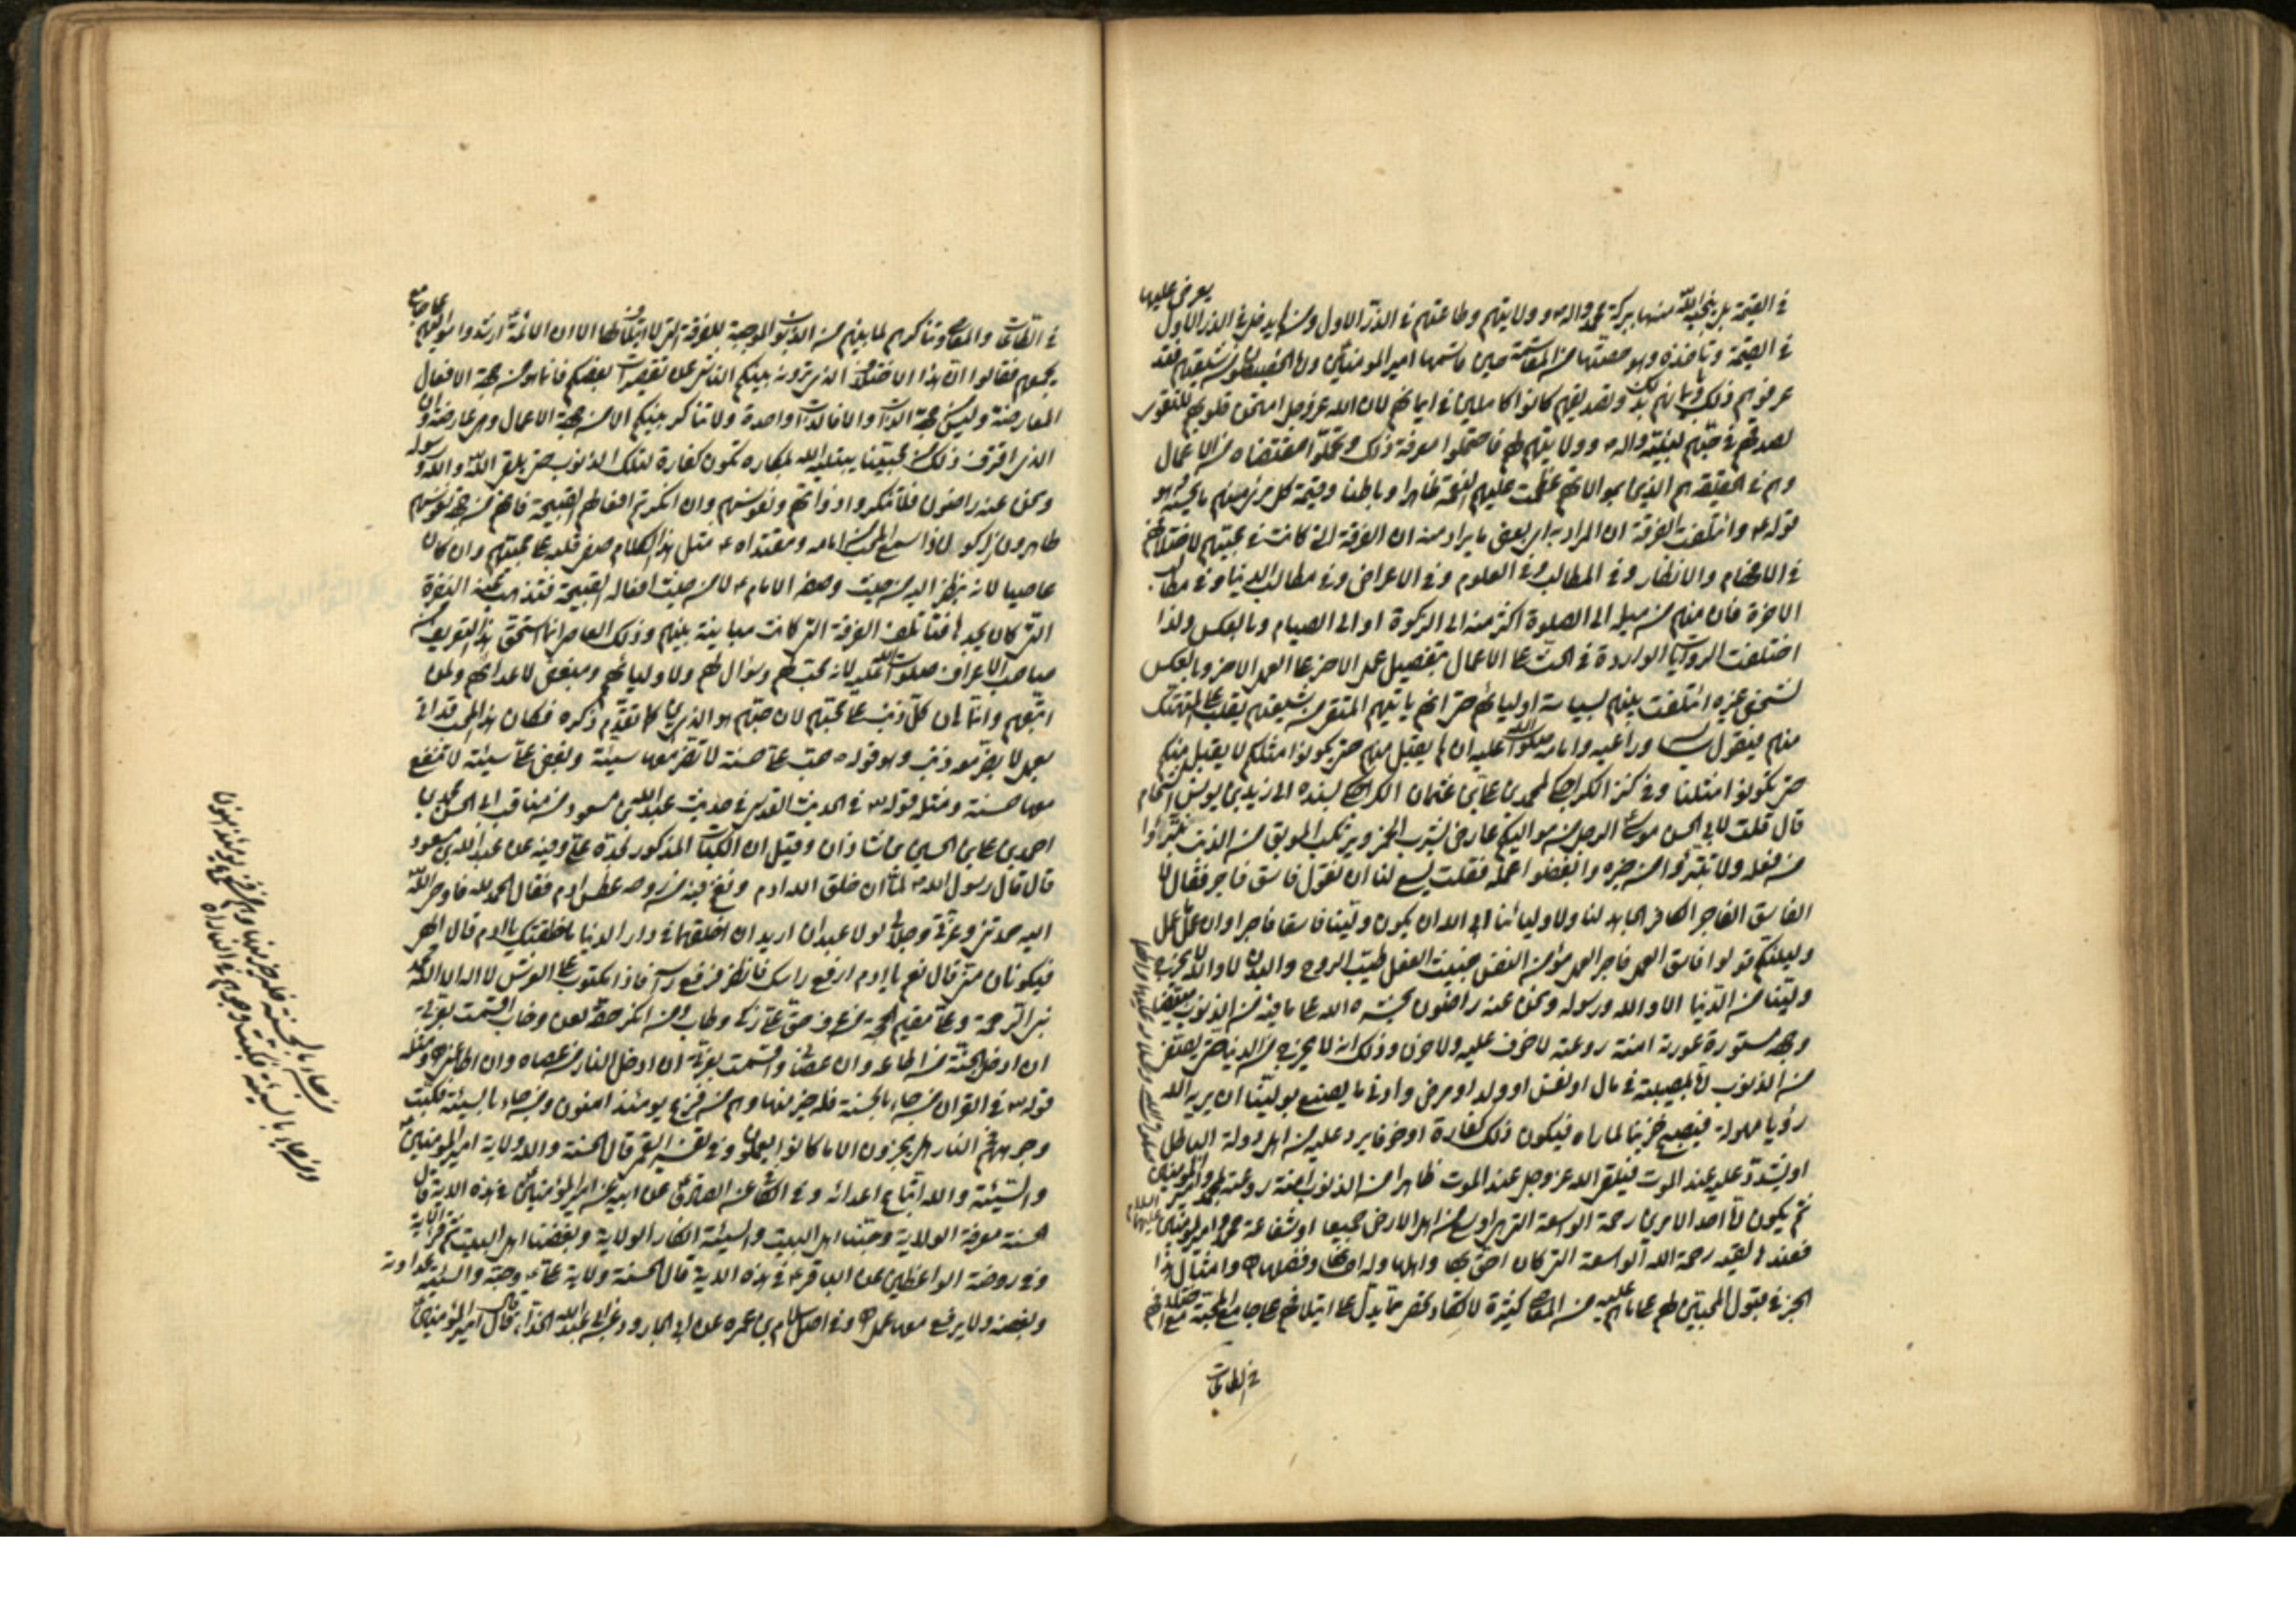 في القيمة بل ينجيه الله منها ببركة محمد واله وولايتهم وطاعتهم في الذر الاول ومن لم يدخل في الذر الاول يعرض عليها
في القيمة وتاخذه وهو حصتها من المقاسمة حين قاسمها امير المؤمنين
عرفوهم ذلك وبانهم بذلك وتصديقهم كانوا كاملين في ايمانهم لان الله عز وجل امتحن قلوبهم للتقوى
لصدقهم في حبهم لنبيه واله وولايتهم لهم فاحتملوا معرفة ذلك وتحملوا مقتضاه من الاعمال
وهم في الحقيقة هم الذين بموالاتهم عظمت عليهم النعمة ظاهرا وباطنا وقيمة كل مرء منهم ما يحسنه
قوله وائتلفت الفرقة ان المراد به اي بعض ما يراد منه ان الفرقة التي كانت في محبتهم لاختلافهم
في الافهام والانظار وفي المطالب وفي العلوم وفي الاعراض وفي مطالب الدنيا وفي مطالب
الاخرة فان منهم من ميله الى الصلوة اكثر منه الى الزكوة او الى الصيام وبالعكس ولذا
اختلفت الروايات الواردة في الحث على الاعمال بتفضيل عمل الاخر على العمل الاخر وبالعكس
لشخص غيره ائتلفت بينهم بسياسة اوليائهم حتى انهم ياتيهم المتقي من شيعتهم
منهم فيقول وراعيه وامامه صلوات الله عليه ان لم يقبل منهم حتى يكونوا امثلكم لا يقبل منكم
حتى تكونوا امثلنا وفي كنز الكراجكي لمحمد بن علي بن عثمان الكراجكي بسنده الى زيد بن يونس الشحام
قال قلت لابي الحسن موسى الرجل من مواليكم عارف يشرب الخمر ويرتكب الموبق من الذنب نتبرأ
من فعله ولا تتبرؤا من خيره وابغضوا عمله فقلت يسع لنا ان نقول فاسق فاجر فقال لا
الفاسق الفاجر الكافر الجاحد لنا ولاوليائنا ابى الله ان يكون ولينا فاسقا فاجرا وان عمل ما عمل
ولكنكم قولوا فاسق العمل فاجر العمل مؤمن النفس خبيث الفعل طيب الروح والبدن لا والله لا يخرج
ولينا من الدنيا الا والله ورسوله ونحن عنه راضون يحشره الله على ما فيه من الذنوب مبيضا
وجهه مستورة عورته امنة روعته لا خوف عليه ولا حزن وذلك انه لا يخرج من الدنيا حتى يصفى
من الذنوب اما بمصيبة في مال او نفس او ولد او مرض وادنى ما يصنع بولينا ان يريه الله
رؤيا مهولة فيصبح حزينا لما راه فيكون ذلك كفارة او خوفا يرد عليه من اهل دولة الباطل
او يشدد عليه عند الموت فيلقى الله عز وجل عند الموت طاهرا من الذنوب امنة روعته بمحمد وامير المؤمنين
ثم يكون له احد الامرين رحمة الله الواسعة التي هي اوسع من اهل الارض جميعا او شفاعة محمد وامير المؤمنين عليهما السلام
فعندها تصيبه رحمة الله الواسعة التي كان احق بها واهلها وله احسانها وفضلها وامثال هذا
الخبر في قبول المحبين لهم على ما هم عليه من المعاصي كثيرة لا تكاد تحصر مما يدل على ائتلافهم على جامع المحبة مع اختلافهم
في الطاعات
في الطاعات والمعاصي وتناكرهم لما بينهم من الذنوب الموجبة للفرقة التي لا ائتلاف معها الا ان الائمة ارشدوا مواليهم على جامع
يجمعهم فقالوا ان هذا الاختلاف الذي ترونه بينكم الناشئ عن تقصيرات بعضكم فانما هو من جهة الافعال
المعارضة وليس من جهة الذات والا فالذات واحدة ولا تناكر بينكم الا من جهة الاعمال وهي عارضة وان
الذي اقترف ذلك من محبينا يبتليه الله بمكاره تكون كفارة لتلك الذنوب حتى يلقى الله والله ورسوله
ونحن عنه راضون فلا تنكروا ذواتهم ونفوسهم وان انكرتم افعالهم القبيحة فانهم من جهة نفوسهم
طاهرون زاكون فاذا سمع المحب من امامه ومقتداه مثل هذا الكلام صفى قلبه على محبتهم وان كان
عاصيا لانه ينظر اليه من حيث وصف الامام لا من حيث افعاله القبيحة فتذهب عنه النفرة
التي كان يجدها فتأتلف الفرقة التي كانت مباينة بينهم وذلك العاصي انما استحق هذا التعريف من
صاحب الاعراف صلوات الله عليه لانه محب لهم وموال لهم ولاوليائهم ومبغض لاعدائهم ولمن
اتبعهم وانما هان كل ذنب على محبتهم لان حبهم هو الذي كما تقدم ذكره فكان هذا المحب قد اتى
بعمل لا يضر معه ذنب وهو قوله حب علي حسنة لا تضر معها سيئة وبغض علي سيئة لا تنفع
معها حسنة ومثله قوله في الحديث القدسي في حديث عبد الله بن مسعود من مناقب ابي الحسن محمد بن
احمد بن علي بن الحسين بن شاذان وقيل ان الكتاب المذكور لجده علي وفيه عن عبد الله بن مسعود
قال قال رسول الله لما ان خلق الله ادم ونفخ فيه من روحه عطس ادم فقال الحمد لله فاوحى الله
اليه حمدتني وعزتي وجلالي لولا عبدان اريد ان اخلقهما في دار الدنيا ما خلقتك يا ادم قال الهي
فيكونان مني قال نعم يا ادم ارفع راسك فانظر فرفع راسه فاذا مكتوب على العرش لا اله الا الله محمد
نبي الرحمة وعلي مقيم الحجة من عرف حق علي زكى وطاب ومن انكر حقه لعن وخاب اقسمت بعزتي
ان ادخل الجنة من اطاعه وان عصاني واقسمت بعزتي ان ادخل النار من عصاه وان اطاعني ومثله
قوله في القران من جاء بالحسنة فله خير منها وهم من فزع يومئذ امنون ومن جاء بالسيئة فكبت
وجوههم في النار هل يجزون الا ما كانوا يعملون وفي تفسير القمي قال الحسنة والله ولاية امير المؤمنين
والسيئة والله اتباع اعدائه وفي الكافي عن الصادق عن ابيه عن امير المؤمنين في هذه الاية قال
الحسنة معرفة الولاية وحبنا اهل البيت والسيئة انكار الولاية وبغضنا اهل البيت ثم قرأ الاية
وفي روضة الواعظين عن الباقر في هذه الاية قال الحسنة ولاية علي وحبه والسيئة عداوته
وبغضه ولا يرفع معها عمل وفي اصل عن ابي الجارود عن ابي عبد الله قال امير المؤمنين
من جاء بالحسنة فله خير منها وهم من فزع يومئذ امنون
ومن جاء بالسيئة فكبت وجوههم في النار